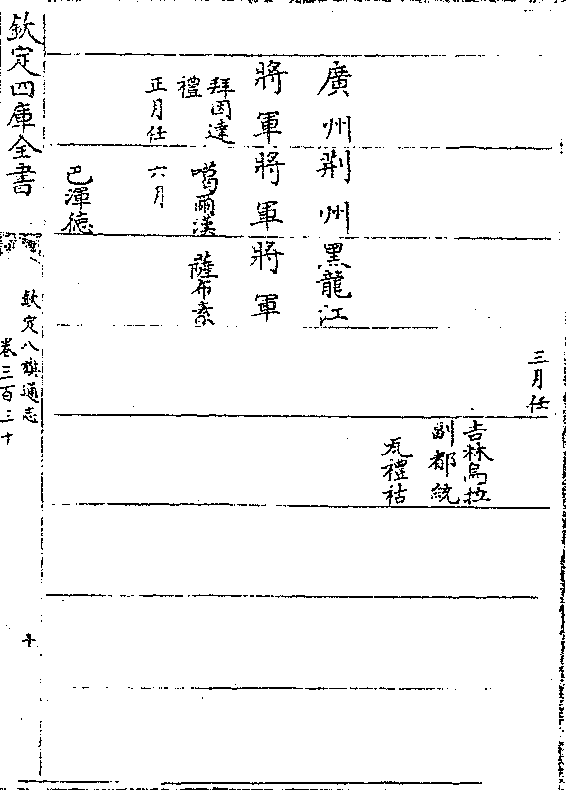 廣州
將軍
拜因達
禮
正月任
荆州
將軍
噶爾漢
六月
巴渾德
黑龍江
將軍
薩布素
三月任
吉林烏拉
副都統
瓦禮祜
欽定四庫全書
欽定八旗通志
卷三百三十